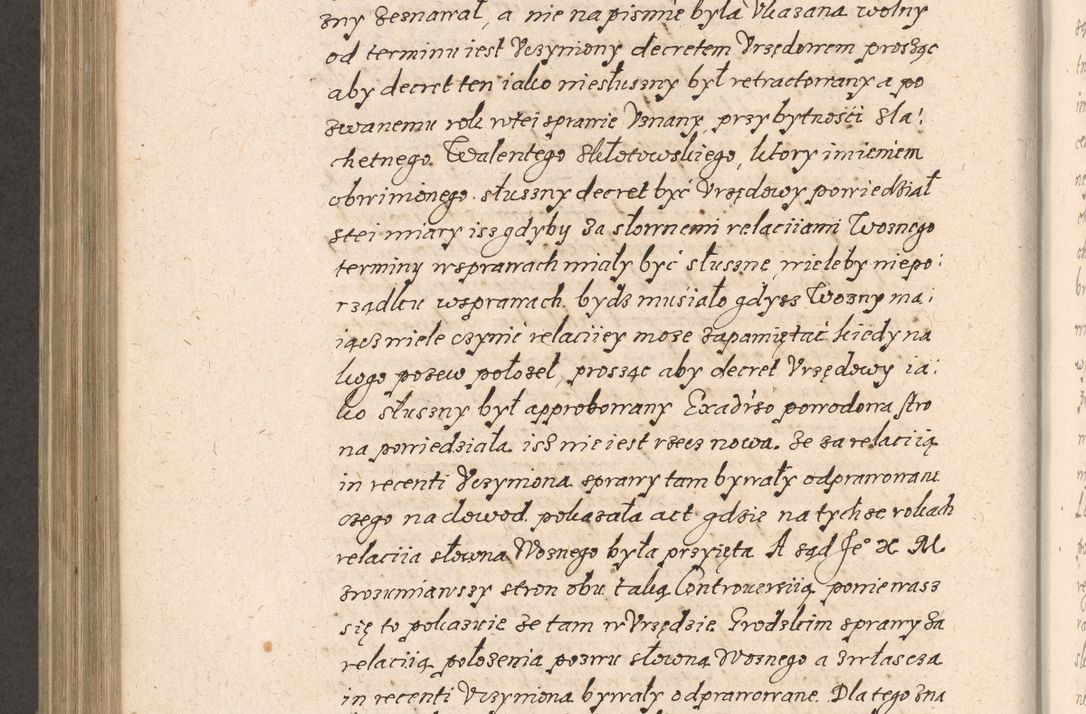 zny zeznawał, a nie na pismie była Ukazana wolny
od terminu iest Uczyniony decretem Urzędowem prosząc
aby decret ten iako niesłuszny był retractowany a po
zwanemu rok w tei sprawie Uznany, przy bytności Sla:
chetnego Walentego Skłotowskiego, ktory imieniem
obwinionego słuszny decret być Urzędowy powiedział
z tei miary isz gdyby za słownemi relaciiami Woznego
terminy w sprawach miały być słuszne, wieleby niepo:
rządku w sprawach bydz musiało gdysz Wozny ma:
iącz wiele czynić relaciiey może zapamiętać kiedy na
kogo pozew położeł, prosząc aby decret Urzędowy ia:
ko słuszny był approbowany Exadiso powodowa stro
na powiedziała isz nie iest rzecz nowa. że za relaciią
in recenti Uczyniona sprawy tam bywały odprawowane
czego na dowod pokazała act gdzie na tychże rokach
relaciia słowna Woznego była przyięta A sąd Je° X M
zrozumiawszy stron obu taką Controuersiią poniewasz
się to pokazuie że tam w Urzędzie Grodzkim sprawy za
relaciią położenia pozwu słowną Woznego a zwłascza
in recenti Uczyniona bywały odprawowane. Dla tego zna